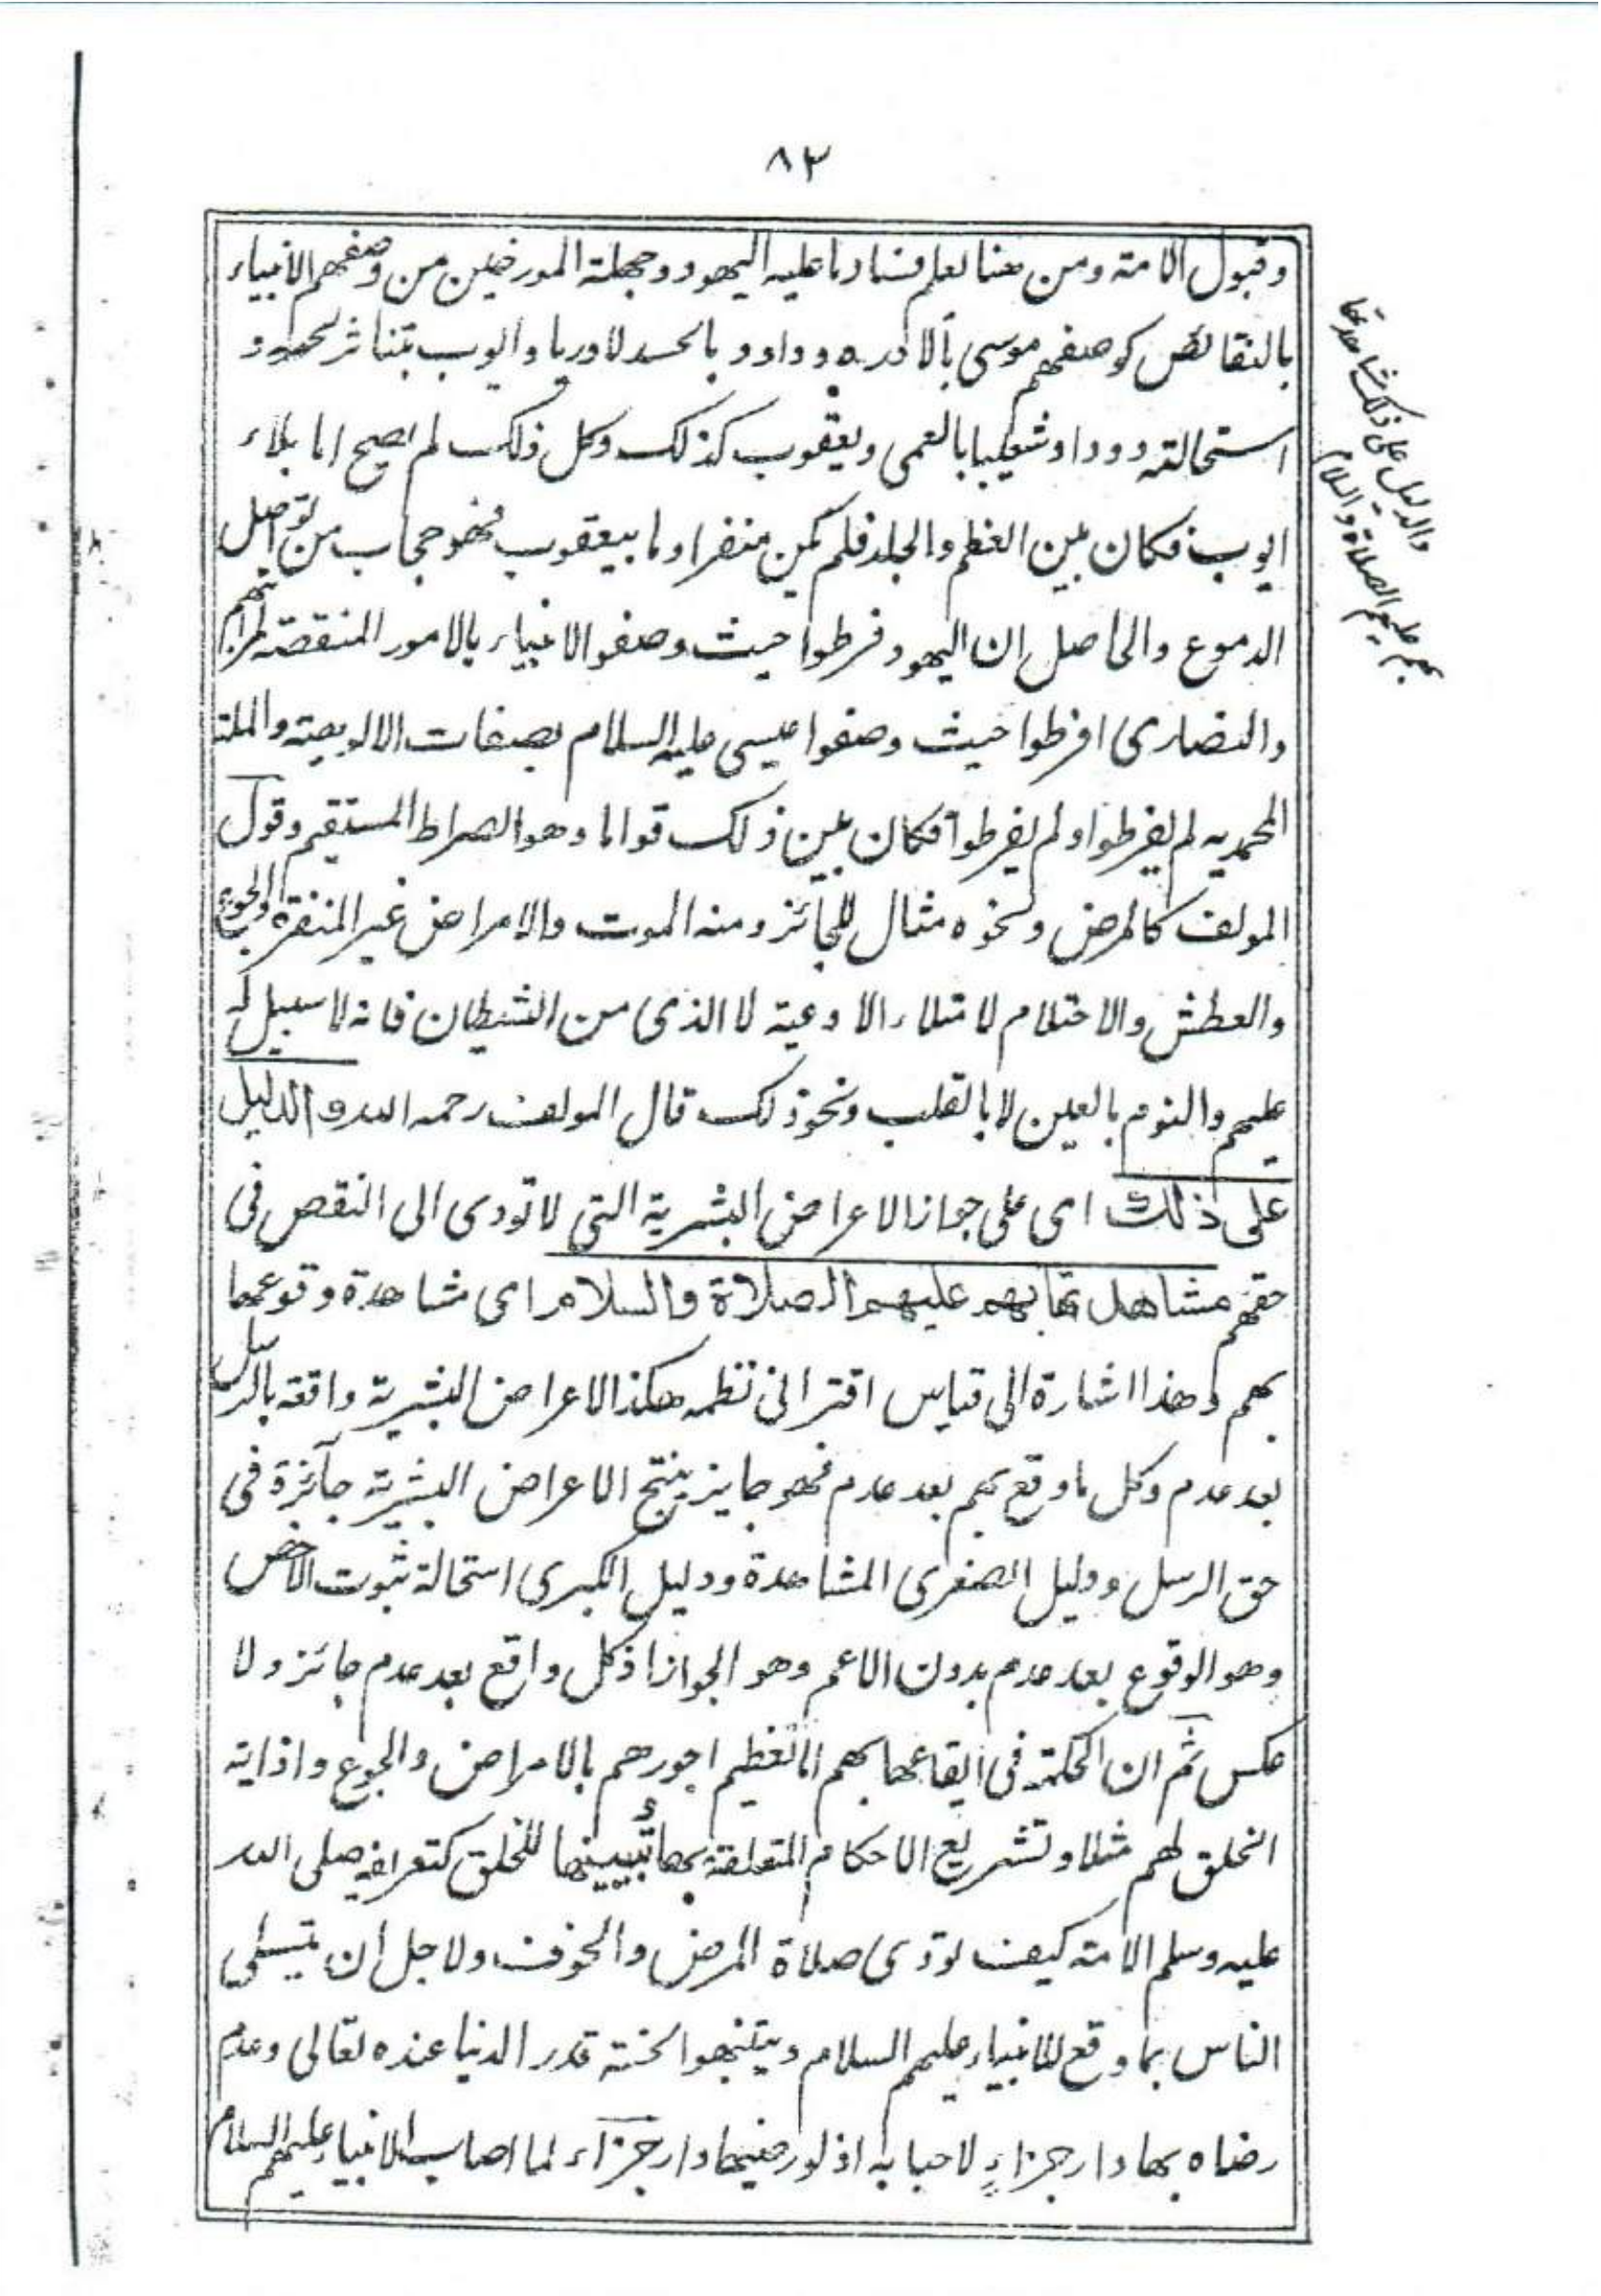 ٨٣
وقبول الامة ومن هنا لعلم فساد ما عليه اليهود وجهلة المورخين من وصفهم الانبياء
بالنقائص كوصفهم موسى بالادره وداود بالحسد لاوريا وايوب بتناثر لحمه و
استحالته دودا وشعيبا بالعمى ويعقوب كذلك وكل ذلك لم يصح اما بلاء
ايوب فكان بين العظم والجلد فلم يكن منفرا وما بيعقوب فهو حجاب من تواصل
الدموع والحاصل ان اليهود فرطوا حيث وصفوا الانبياء بالامور المنقصة لمراتبهم
والنصارى افرطوا حيث وصفوا عيسى عليه السلام بصفات الالوهية والملة
المحمديه لم يفرطوا ولم يفرطوا فكان بين ذلك قواما وهو الصراط المستقيم وقول
المولف كالمرض ونحوه مثال للجائز ومنه الموت والامراض غير المنفرة والجوع
والعطش والاحتلام لامتلاء الاوعية لا الذى من الشيطان فانه لا سبيل له
عليهم والنوم بالعين لا بالقلب ونحو ذلك قال المولف رحمه الله والدليل
على ذلك اى على جواز الاعراض البشرية التى لا تودى الى النقص فى
حقهم مشاهدتها بهم عليهم الصلاة والسلام اى مشاهدة وقوعها
بهم وهذا اشارة الى قياس اقترانى نظمه هكذا الاعراض البشرية واقعة بالرسل
بعد عدم وكل ما وقع بهم بعد عدم فهو جايز ينتج الاعراض البشرية جآئزة فى
حق الرسل ودليل الصغرى المشاهدة ودليل الكبرى استحالة ثبوت الاخص
وهو الوقوع بعد عدم بدون الاعم وهو الجواز اذ كل واقع بعد عدم جائز ولا
عكس ثم ان الحكمة فى ايقاعها بهم اما تعظيم اجورهم بالامراض والجوع واذاية
الخلق لهم مثلا وتشريع الاحكام المتعلقة بها تبيينها للخلق كتعريفه صلى الله
عليه وسلم الامة كيف تودى صلاة المرض والخوف ولاجل ان يتسلى
الناس بما وقع للانبياء عليهم السلام ويتنبهوا لخسة قدر الدنيا عنده تعالى وعدم
رضاه بها دار جزاء لاحبابه اذ لو رضيها دار جزآء لما اصاب الانبياء عليهم السلام
والدليل على ذلك مشاهدتها
بهم عليهم الصلاة والسلام